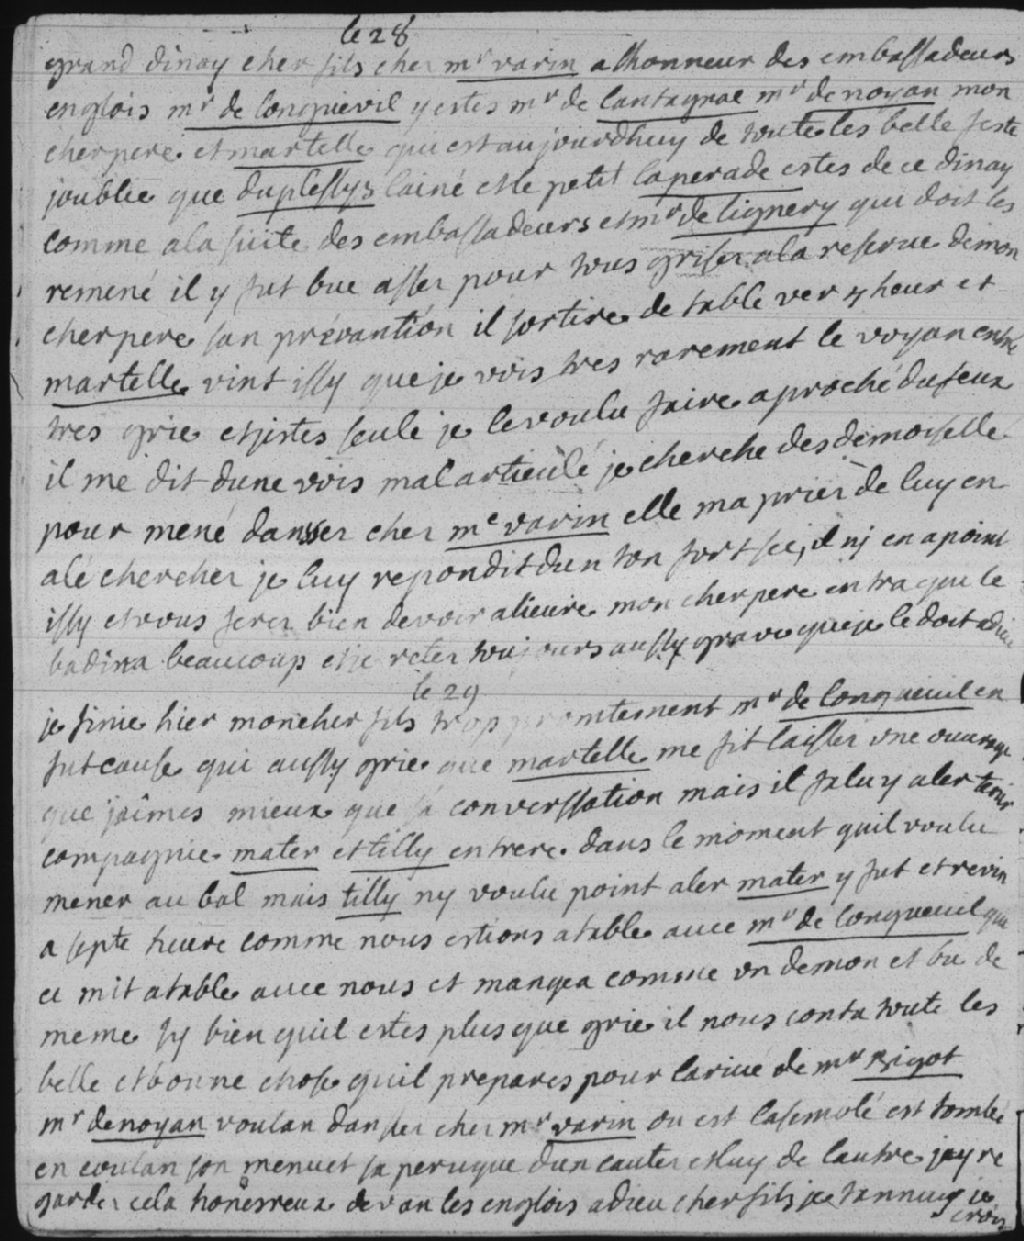 le 28
grand dinay cher fils cher mr varin a lhonneur des embassadeurs
englois mr de longuevil y estes mr de lantagnac mr de noyan mon
cher pere et martelle qui est aujourdhuy de toute les belle feste
joublie que duplessys lainé et le petit laperade estes de ce dinay
comme a la suite des embassadeurs et mr de lignery qui doit les
remené il y fut bue asser pour tous griser a la reserve de mon
cher pere san prévantion il sortire de table ver 4 heur et
martelle vint issy que je vois tres rarement le voyan entré
tres grie et jestes seule je le voulu faire aproché du feux
il me dit dune vois mal articulé je cherche des demoiselle
pour mené danser cher me varin elle ma prier de luy en
alé chercher je luy repondit dun ton fort sec, il nj en a point
issy et vous ferer bien de voir alieure mon cher pere entra qui le
badina beaucoup et je reter toujours aussy grave que je le doit adieu
le 29
je finie hier mon cher fils trop promtement mr de longueuil en
fut cause qui aussy grie que martelle me fit laisser une ouvrage
que jaimes mieux que sa converssation mais il falu y aler tenir
compagnie mater et tilly entrere dans le moment quil voulu
mener au bal mais tilly ny voulu point aler mater y fut et revin
a septe heure comme nous estions a table avec mr de longueuil qui
ce mit a table avec nous et mangea comme un demon et bu de
meme sy bien quil estes plus que grie il nous conta toute les
belle et bonne chose quil prepares pour larivé de mr Bigot
mr de noyan voulan danser cher mr varin ou est lasemblé est tombé
en coulan son menuet sa peruque dun cauter et luy de lautre jay re
garder cela honterreux devan les englois adieu cher fils je tannuy je
crois